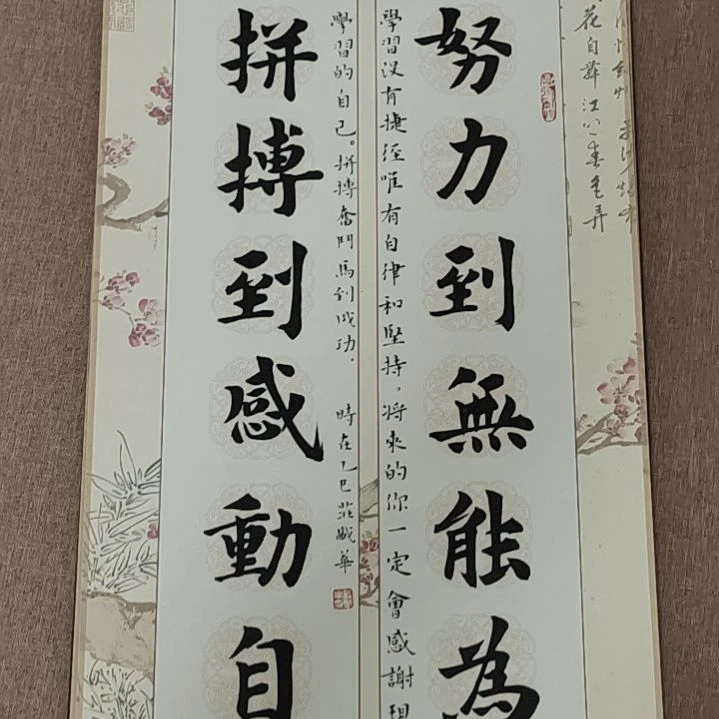 花自舞江春色弄
努力到無能為
學習没有捷徑唯有自律和堅持，将來的你一定會感謝現
學習的自己。拼搏奮鬥馬到成功． 時在乙巳莊華
拼搏到感動自